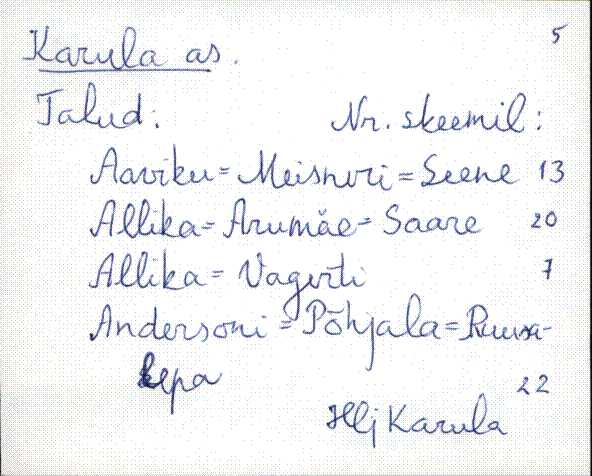 5
Karula as.
Talud: Nr. skeemil:
Aaviku = Meisnri = Seene 13
Allika = Arumäe = Saare 20
Allika = Vagerti 7
Andersoni = Põhjala = Ruusa-
lepa 22
Hlj Karula